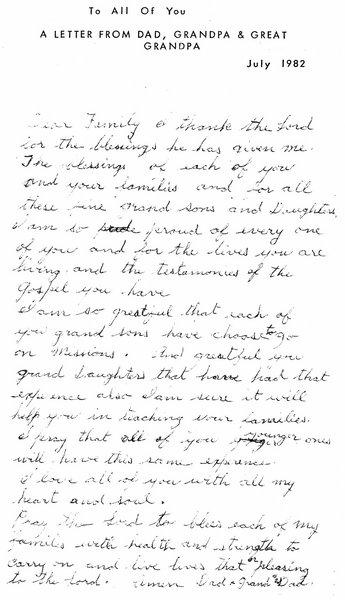 To All Of You
A LETTER FROM DAD, GRANDPA & GREAT
GRANDPA
July 1982
Dear Family I thank the Lord
for the blessings he has given me.
The blessings of each of you
and your families and for all
these fine grand sons and Daughters.
I am so proud of every one
of you and for the lives you are
living and the testamonies of the
Gospel you have
I am so greatful that each of
you grand sons have choose to go
on Missions. And greatful you
grand Daughters that have had that
expience also I am sure it will
help you in teaching your families.
I pray that all of you younger ones
will have this same expience
I love all of you with all my
heart and soul.
Pray the Lord to bless each of my
families with health and strength to
carry on and live lives that are pleasing
to the Lord. Amen Dad & Grand Dad.